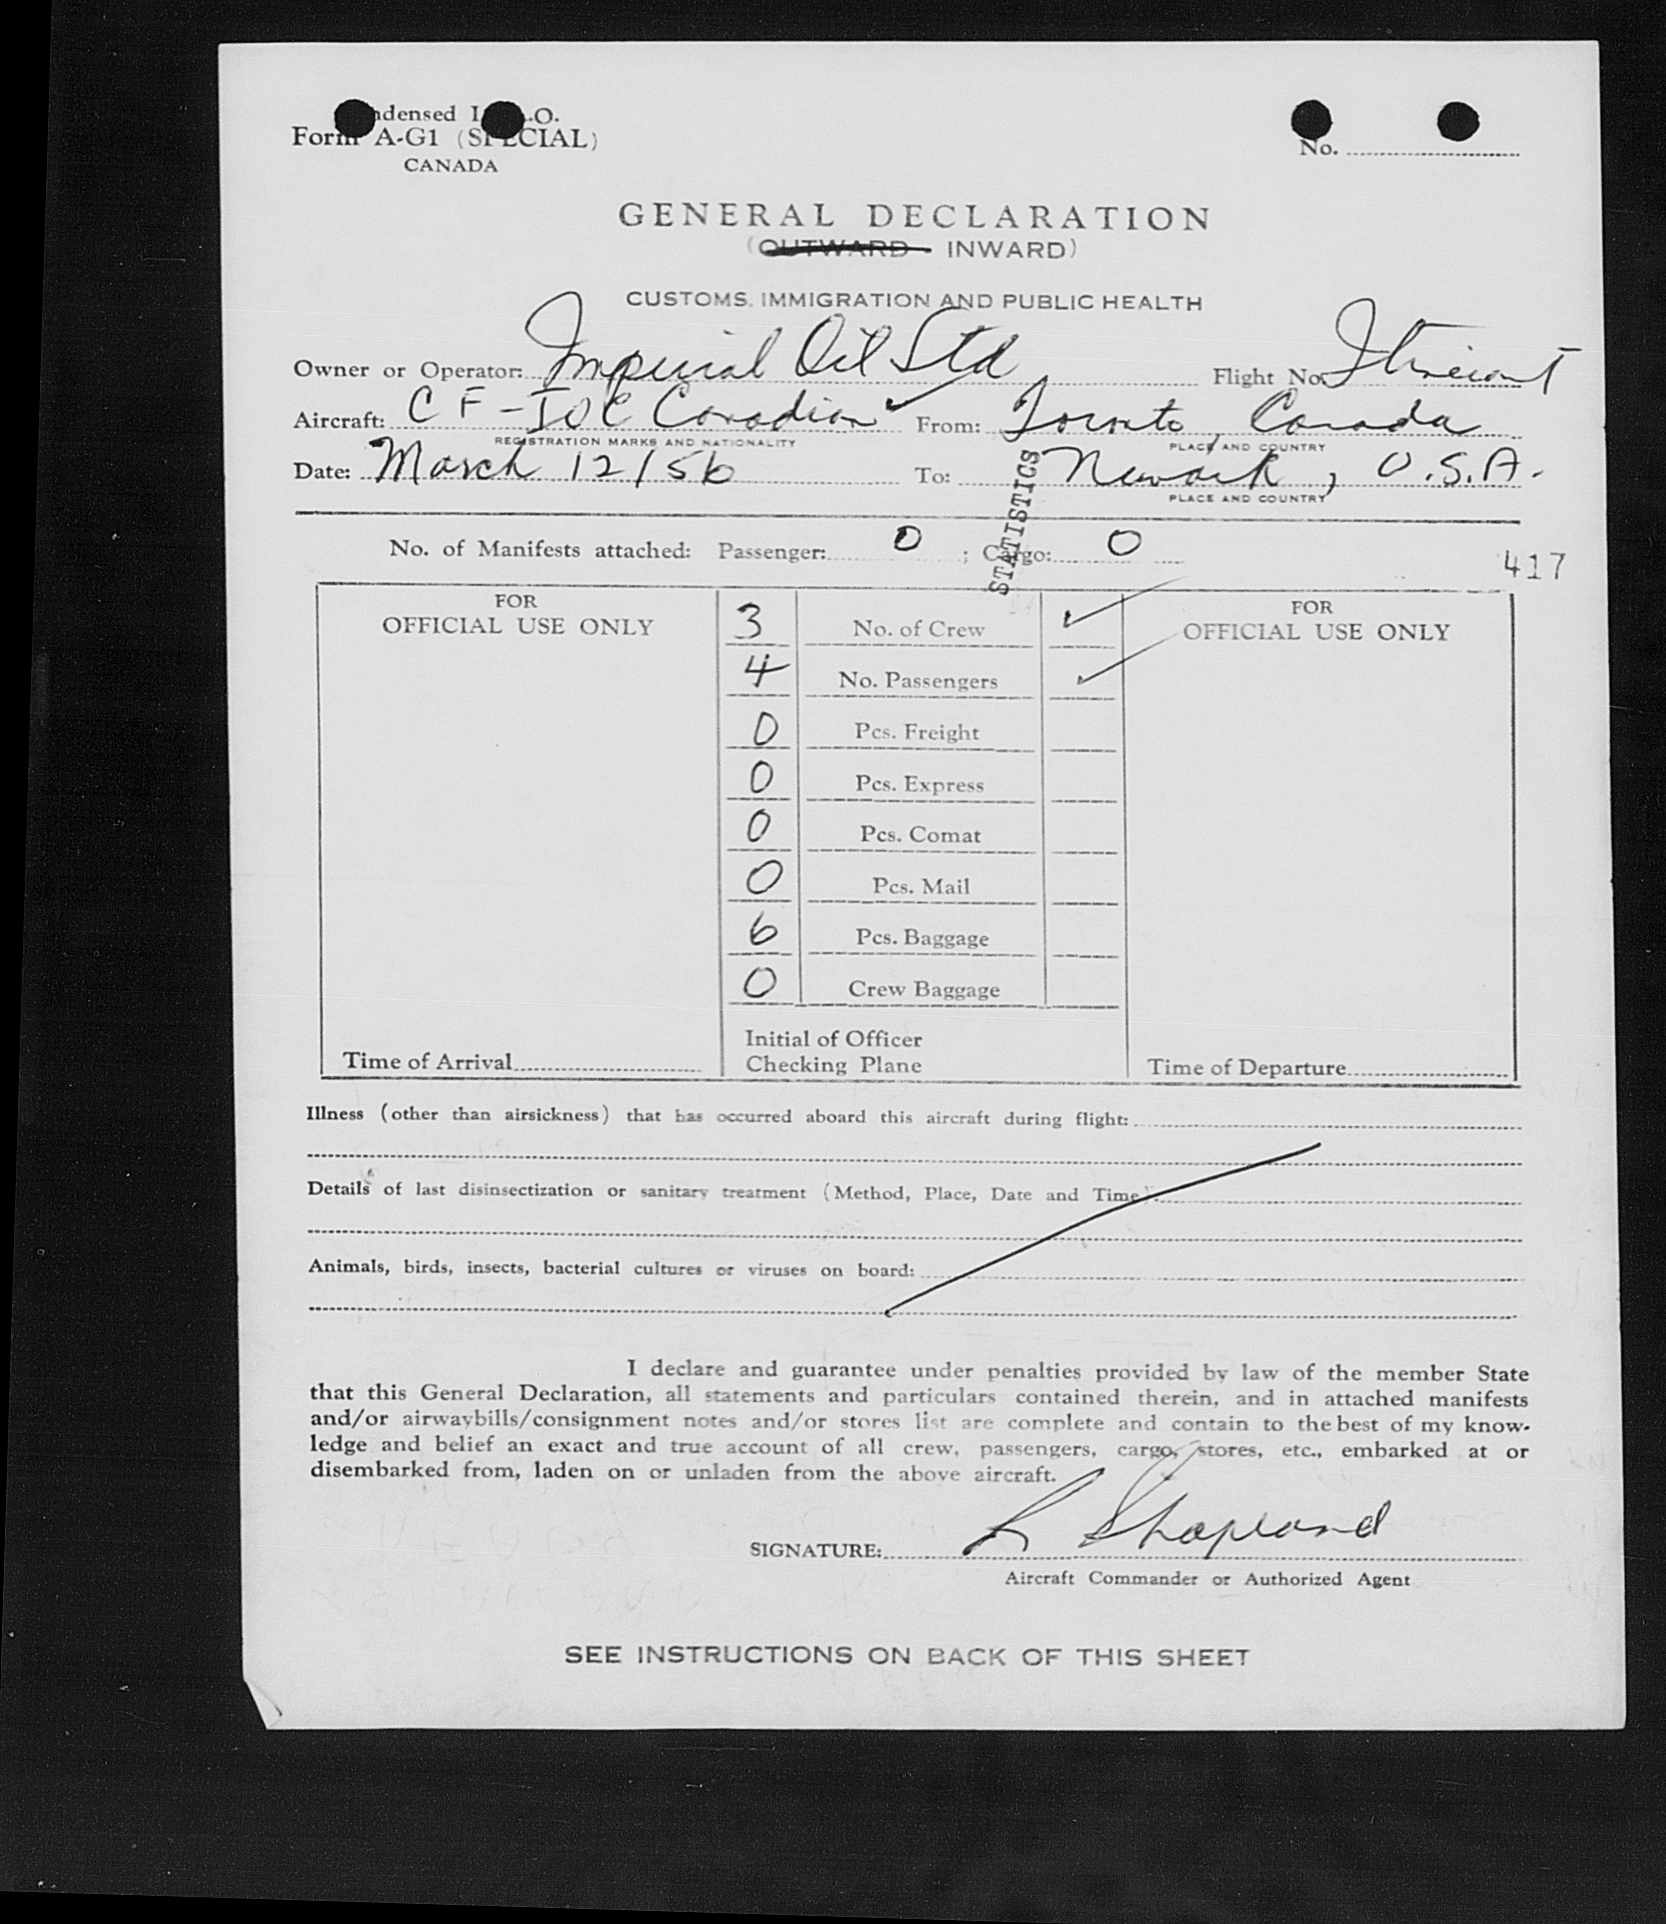 Condensed I.C.A.O.
Form A-G1 (SPECIAL)
CANADA
No.
GENERAL DECLARATION
(OUTWARD - INWARD)
CUSTOMS, IMMIGRATION AND PUBLIC HEALTH
Owner or Operator: Imperial Oil Ltd Flight No. Itinerant
Aircraft: CF-IOC Canadian From: Toronto, Canada
REGISTRATION MARKS AND NATIONALITY PLACE AND COUNTRY
Date: March 12/56 To: Newark, U.S.A.
PLACE AND COUNTRY
STATISTICS
No. of Manifests attached: Passenger: 0 ; Cargo: 0
417
FOR
OFFICIAL USE ONLY
3 No. of Crew
4 No. Passengers
0 Pcs. Freight
0 Pcs. Express
0 Pcs. Comat
0 Pcs. Mail
6 Pcs. Baggage
0 Crew Baggage
FOR
OFFICIAL USE ONLY
Time of Arrival
Initial of Officer
Checking Plane
Time of Departure
Illness (other than airsickness) that has occurred aboard this aircraft during flight:
Details of last disinsectization or sanitary treatment (Method, Place, Date and Time)
Animals, birds, insects, bacterial cultures or viruses on board:
I declare and guarantee under penalties provided by law of the member State
that this General Declaration, all statements and particulars contained therein, and in attached manifests
and/or airwaybills/consignment notes and/or stores list are complete and contain to the best of my know-
ledge and belief an exact and true account of all crew, passengers, cargo, stores, etc., embarked at or
disembarked from, laden on or unladen from the above aircraft.
SIGNATURE: L Shapland
Aircraft Commander or Authorized Agent
SEE INSTRUCTIONS ON BACK OF THIS SHEET